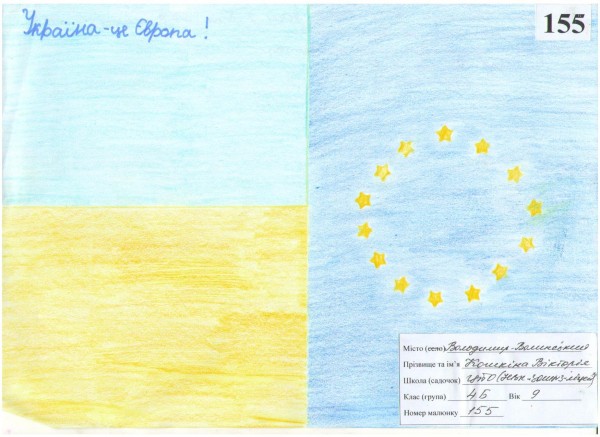 Україна - це Європа!
155
Місто (село) Володимир-Волинський
Прізвище та ім'я Кошкіна Вікторія
Школа (садочок)
Клас (група) 4Б Вік 9
Номер малюнку 155